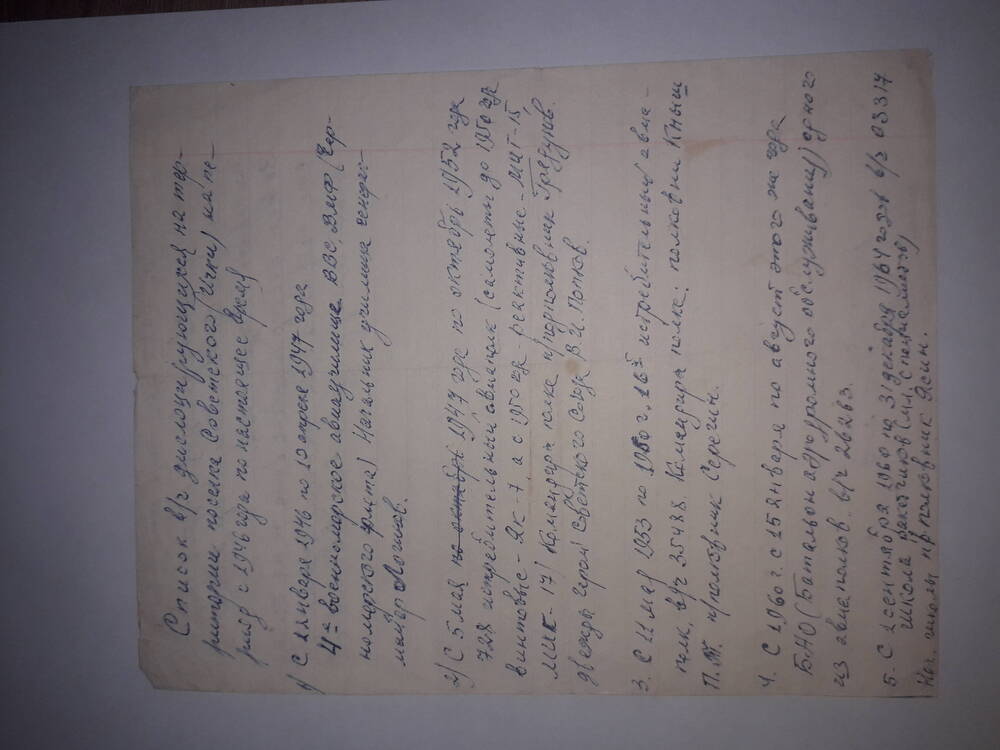 Список в/ч дислоцирующихся на тер-
ритории поселка Советского (Ички) на пе-
риод с 1946 года по настоящее время
1) С 2 января 1946 по 10 апреля 1947 года
4ое военоморское авиаучилище ВВС, ВМФ (Чер-
номорского флота) Начальник училища генерал-
майор Логинов.
2) С 5 мая по октябрь 1947 года по октябрь 1952 года
истребительный авиаполк (самолеты до 1950 года
винтовые - Як-7 а с 1950 года - реактивные - МИГ-15,
МИГ-17) Командиры полка п/полковник Грязунов.
дважды герой Советского Союза В.И. Попков.
3. С 11 мая 1953 по 1960 г. истребительный авиа-
полк, в/ч 35488. Командиры полка: полковник Кныш
П.М. п/полковник Серегин.
4. С 1960 г. с 15 января по август этого же года
БАО (Батальон аэродромного обслуживания) одного
из авиаполков. в/ч 26263.
5. С 1 сентября 1960 по 31 декабря 1964 годов в/ч 03317
Школа ракетчиков (мл. специалистов)
Нач. школы п/полковник Ясин.